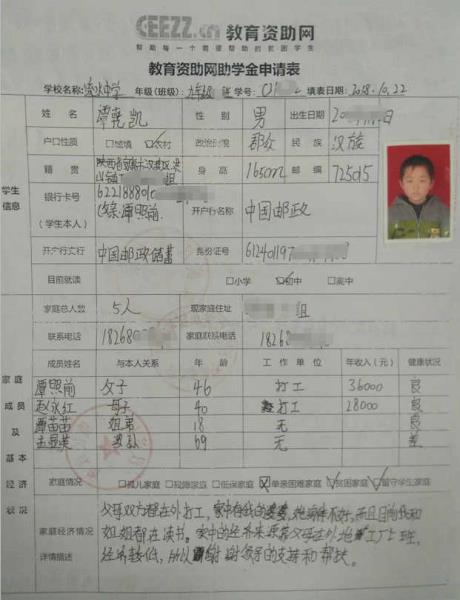 CEEZZ.cn 教育资助网
帮助每一个需要帮助的贫困学生
教育资助网助学金申请表
学校名称: 中学 年级(班级): 九年级 班 学号: 填表日期: 2018.10.22
姓名 谭尧凯 性别 男 出生日期 20
户口性质 □城镇 ☑农村 政治面貌 群众 民族 汉族
籍贯 陕西省 身高 165cm 邮编 725015
组
学生信息
银行卡号 622188801 开户行名称 中国邮政
(学生本人) 谭照前
开户行支行 中国邮政储蓄 身份证号 612401197
目前就读 □小学 ☑初中 □高中
家庭总人数 5人 现家庭住址 组
联系电话 18268 家庭联系电话 18268
家庭成员及基本经济状况
成员姓名 与本人关系 年龄 工作单位 年收入(元) 健康状况
谭照前 父子 46 打工 36000 良
赵永红 母子 40 打工 28000 良
谭苗苗 姐弟 18 无 良
王显英 婆孙 69 无 差
家庭情况 □孤儿家庭 □残障家庭 □低保家庭 ☒单亲困难家庭 ☑贫困家庭 ☑留守学生家庭
父母双方程在外打工,家中有我的婆婆,她身体不好,而且目前我和
家庭经济情况 姐姐都在读书。家中的经济来源靠父母在外地工厂上班,
详细描述 经济较低,所以谢谢领导的支持和帮扶。